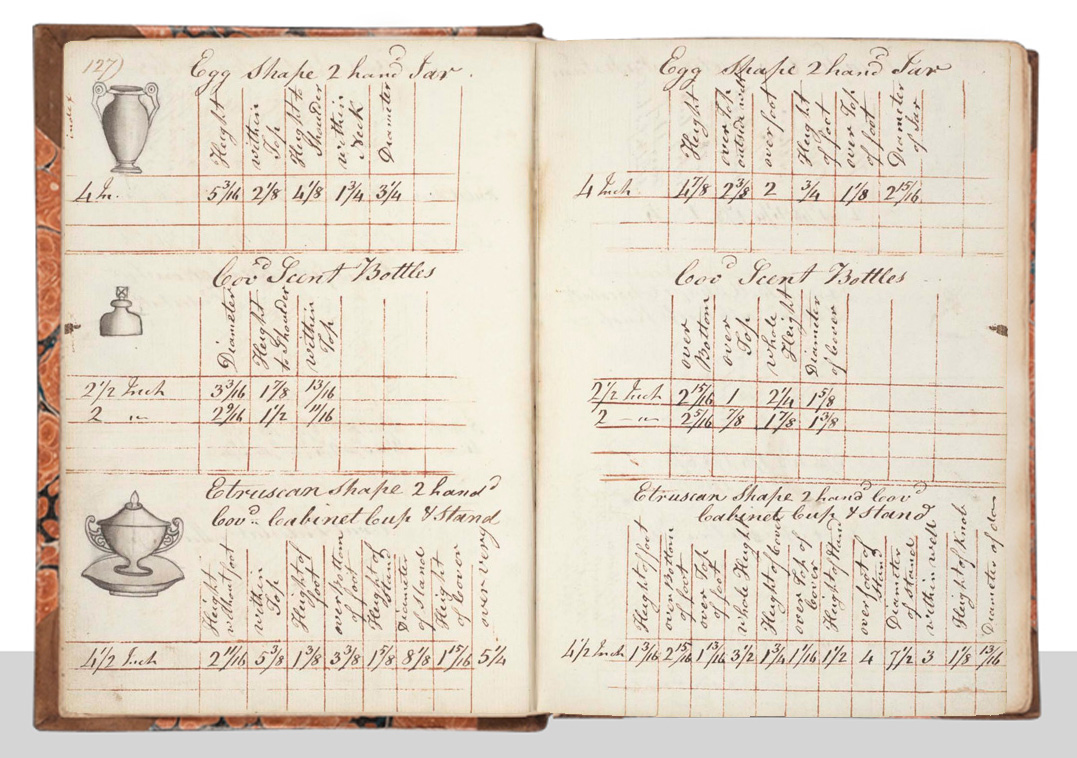 127)
index
Egg Shape 2 hand^d Jar.
Height
within Top
Height to Shoulder
within Neck
Diameter
4 In. 5 3/16 2 1/8 4 1/8 1 3/4 3 1/4
Cov^d Scent Bottles
Diameter
Height to Shoulder
within Top
2 1/2 Inch 3 3/16 1 7/8 13/16
2 " 2 9/16 1 1/2 11/16
Etruscan Shape 2 hand^d
Cov^d Cabinet Cup & Stand
Height without foot
within Top
Height of foot
over Bottom of foot
Height of Stand
Diameter of Stand
Height of Cover
over verge
4 1/2 Inch 2 11/16 5 3/8 1 3/8 3 3/8 1 5/8 8 1/8 1 15/16 5 1/4
Egg Shape 2 hand^d Jar
Height
over Top
over foot
Height of foot
over Top of foot
Diameter of Jar
4 Inch 4 7/8 2 3/8 2 3/4 1 1/8 2 15/16
Cov^d Scent Bottles
over Bottom
over Top
whole Height
Diameter of Cover
2 1/2 Inch 2 15/16 1 2 1/4 1 5/8
2 " 2 5/16 7/8 1 7/8 1 3/8
Etruscan Shape 2 hand^d Cov^d
Cabinet Cup & Stand
Height of foot
over Bottom of foot
over Top of foot
whole Height
Height of Cover
over Top of Cover
Height of Stand
over foot of Stand
Diameter of Stand
within well
Height of Knob
Diameter of do
4 1/2 Inch 1 3/16 2 15/16 1 13/16 3 1/2 1 3/4 1 1/16 1 1/2 4 7 1/2 3 1 1/8 13/16